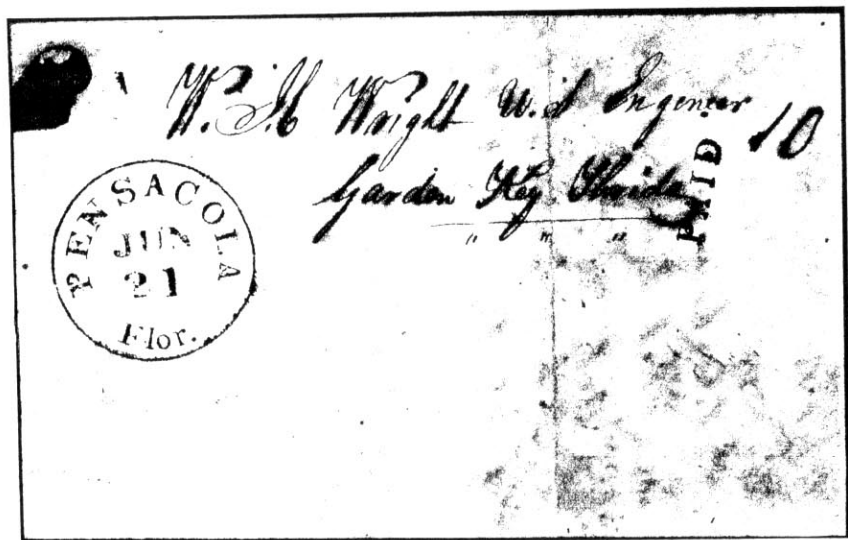 W. H Wright U. S Engeneer
Garden Key Florida
" " "
PAID
10
PENSACOLA
JUN
21
Flor.